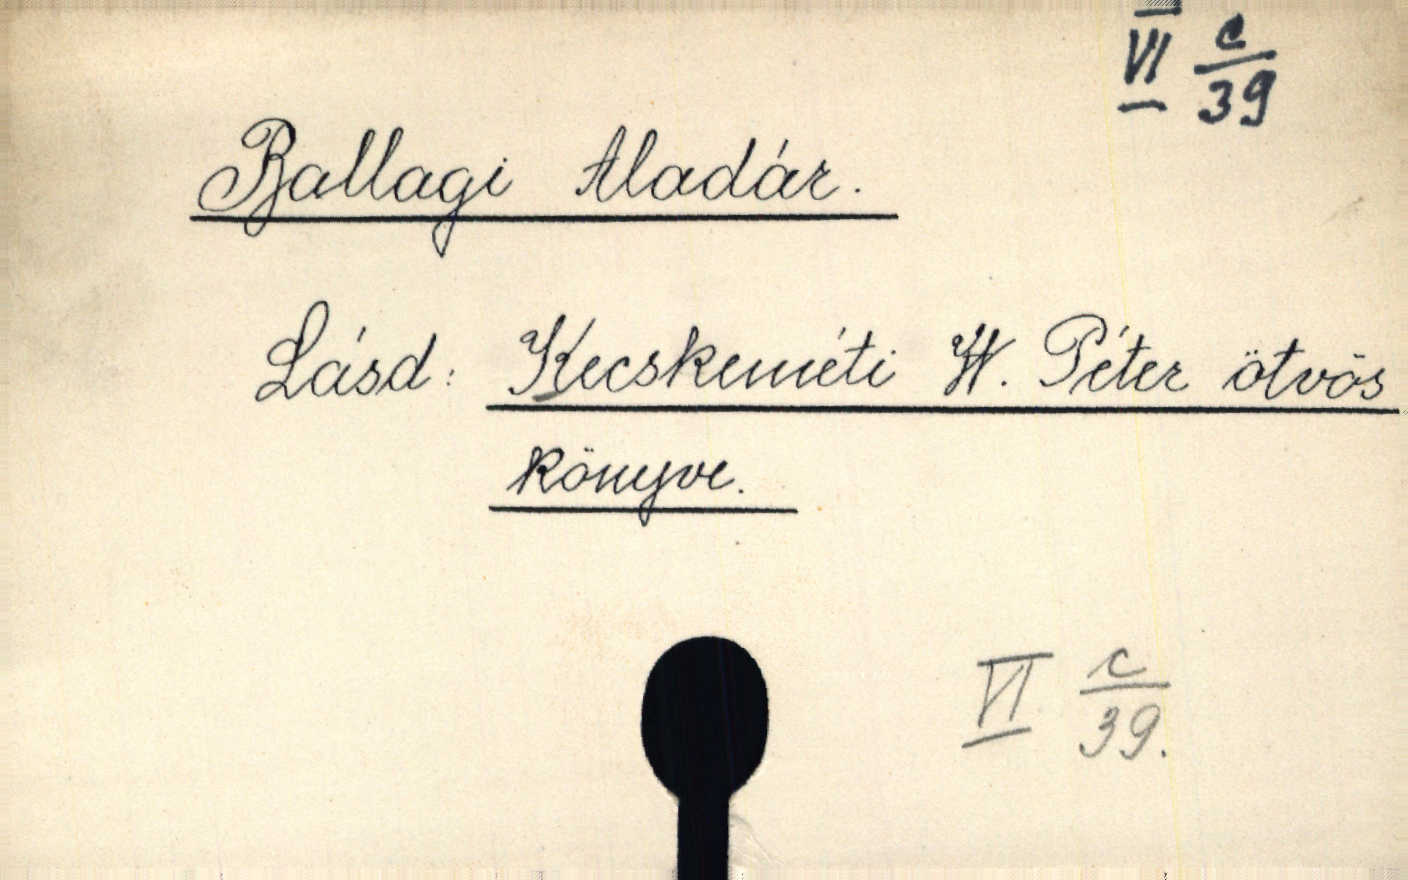 VI c/39
Ballagi Aladár.
Lásd: Kecskeméti W. Péter ötvös
könyve.
VI c/39.